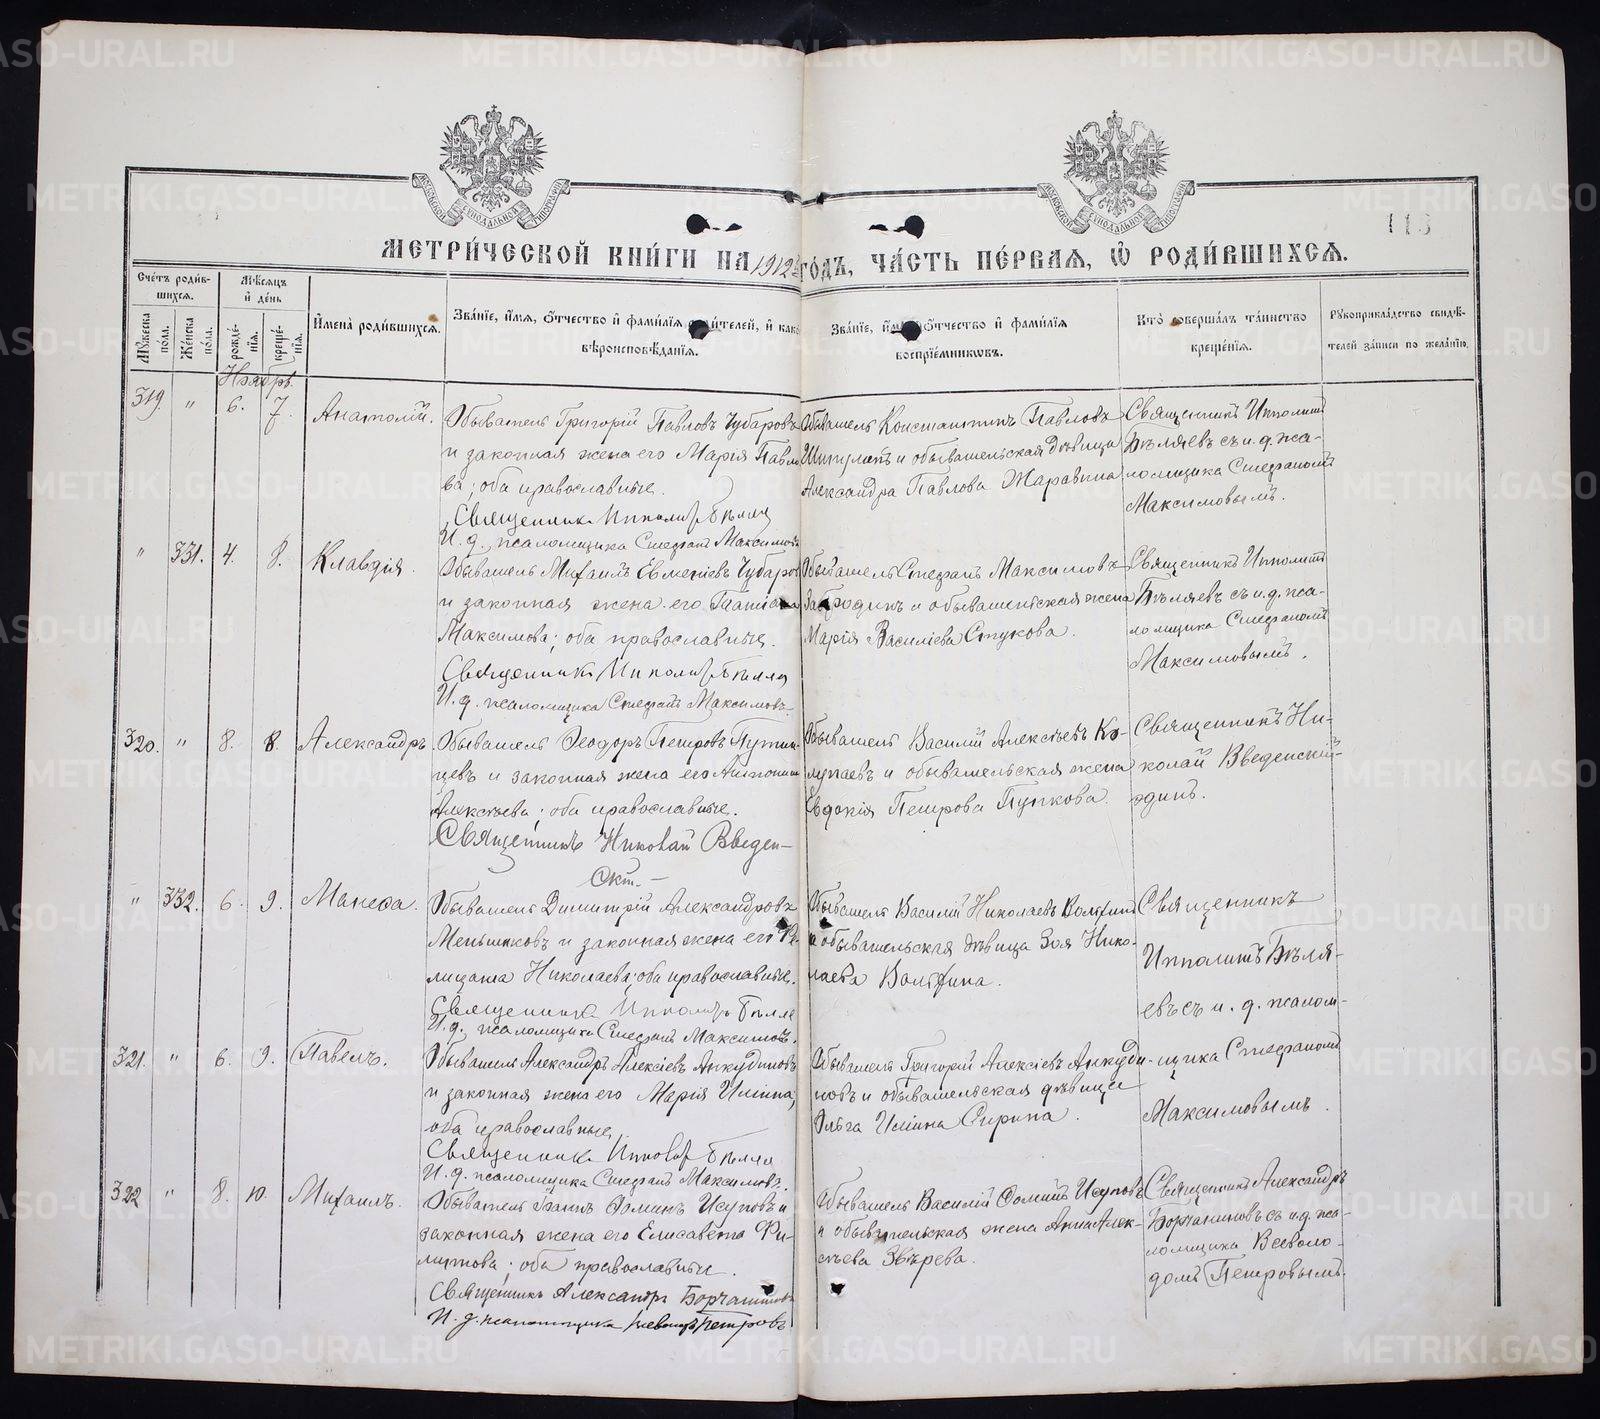 МОСКОВСКОЙ СѴНОДАЛЬНОЙ ТИПОГРАФІИ
МОСКОВСКОЙ СѴНОДАЛЬНОЙ ТИПОГРАФІИ
113
МЕТРИ́ЧЕСКОЙ КНИ́ГИ НА 1912 го́дъ, ЧА́СТЬ ПЕ́РВАѦ, Ѽ РОДИ́ВШИХСѦ.
Сче́тъ роди́в-
шихсѧ.
Мѣ́сѧцъ
и҆ де́нь
Мꙋ́жеска
по́ла.
Же́нска
по́ла.
рожде́-
нїѧ.
креще́-
нїѧ.
И҆мена̀ роди́вшихсѧ.
Зва́нїе, и҆́мѧ, ѻ҆́тчество и҆ фами́лїѧ роди́телей, и҆ како́гѡ
вѣроисповѣ́данїѧ.
Зва́нїе, и҆́мѧ, ѻ҆́тчество и҆ фами́лїѧ
воспрїе́мникѡвъ.
Кто̀ соверша́лъ та́инство
креще́нїѧ.
Рꙋкоприкла́дство свидѣ́-
телей за́писи по жела́нїю.
Ноябрь.
319. " 6. 7. Анатолій.
Обыватель Григорій Павловъ Чубаровъ
и законная жена его Марія Павло
ва; оба православные.
Священникъ Ипполитъ Бѣляе
И. д. псаломщика Стефанъ Максимовъ
Обыватель Константинъ Павловъ
и обывательская дѣвица
Александра Павлова Жаравина
Священникъ Ипполитъ
Бѣляевъ съ и. д. пса-
ломщика Стефаномъ
Максимовымъ.
" 331. 4. 8. Клавдія.
Обыватель Михаилъ Евменіевъ Чубаров
и законная жена его Татіана
Максимова; оба православные.
Священникъ Ипполитъ Бѣляе
И. д. псаломщика Стефанъ Максимовъ.
Обыватель Стефанъ Максимовъ
Забродинъ и обывательская жена
Марія Васильева Стукова.
Священникъ Ипполитъ
Бѣляевъ съ и. д. пса-
ломщика Стефаномъ
Максимовымъ.
320. " 8. 8. Александръ.
Обыватель Ѳеодоръ Петровъ
цевъ и законная жена его Антонина
Алексѣева; оба православные.
Священникъ Николай Введен-
скій. -
Обыватель Василій Алексѣевъ Ко-
лупаевъ и обывательская жена
Евдокія Петрова Пупкова.
Священникъ Ни-
колай Введенскій
одинъ.
" 332. 6. 9. Манефа.
Обыватель Димитрій Александровъ
Меньшиковъ и законная жена его Фе-
лицата Николаева; оба православные.
Священникъ Ипполитъ Бѣляе
И. д. псаломщика Стефанъ Максимовъ.
Обыватель Василій Николаевъ
и обывательская дѣвица Зоя Нико-
лаева
Священникъ
Ипполитъ Бѣля-
евъ съ и. д. псалом-
321. " 6. 9. Павелъ.
Обыватель Александръ Алексіевъ Анкудиновъ
и законная жена его Марія Ильина,
оба православные.
Священникъ Ипполитъ Бѣляе
И. д. псаломщика Стефанъ Максимовъ.
Обыватель Григорій Алексіевъ Анкуди-
новъ и обывательская дѣвица
Ольга Ильина Сирина.
щика Стефаномъ
Максимовымъ.
322 " 8. 10. Михаилъ.
Обыватель Іоаннъ Ѳоминъ Исуповъ и
законная жена его Елисавета Фи-
липпова; оба православные.
Священникъ Александръ Борчаниновъ
И. д. псаломщика Всеволодъ Петровъ
Обыватель Василій Ѳоминъ Исуповъ
и обывательская жена Анна Алек-
сѣева Звѣрева.
Священникъ Александръ
Борчаниновъ съ и. д. пса-
ломщика Всеволо-
домъ Петровымъ.